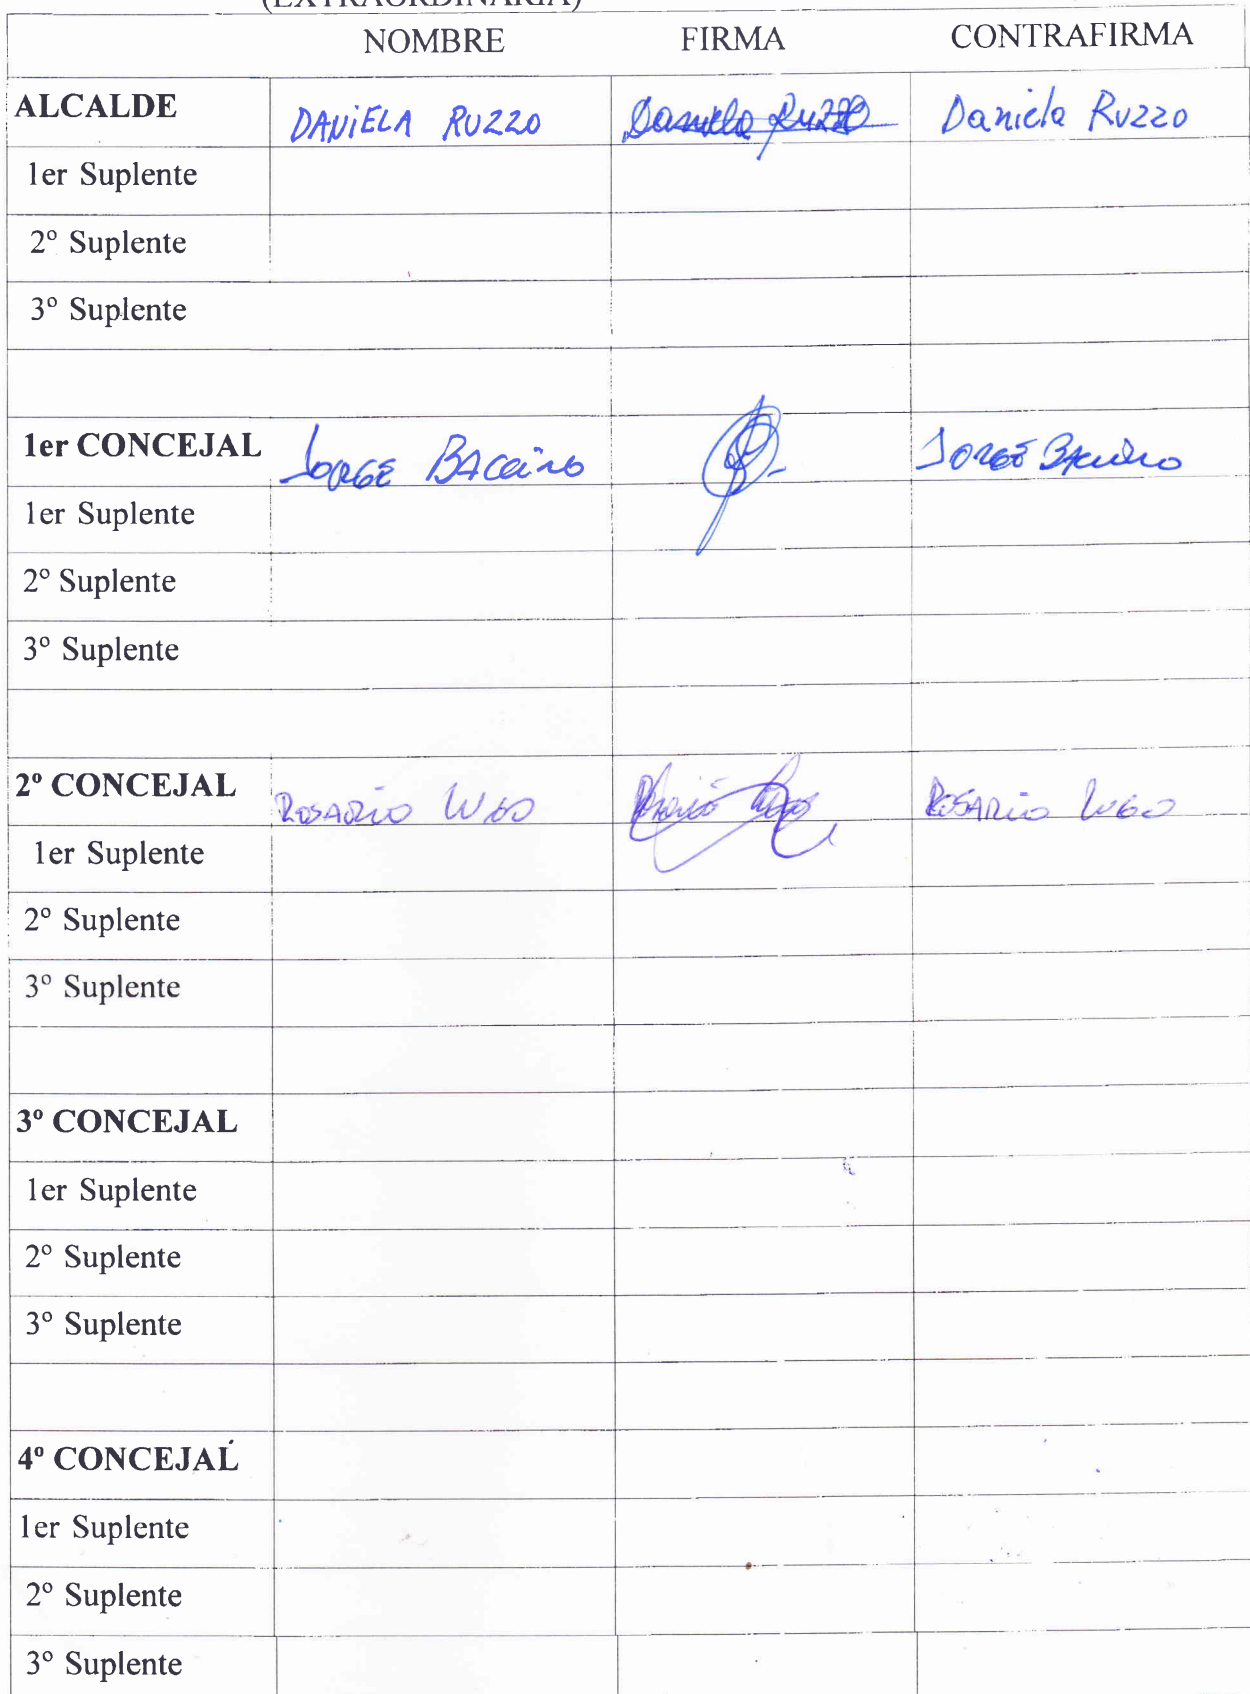 (EXTRAORDINARIA)
NOMBRE FIRMA CONTRAFIRMA
ALCALDE DANiELA RUZZO Daniela Ruzzo Daniela Ruzzo
1er Suplente
2º Suplente
3º Suplente
1er CONCEJAL JORGE BACCiNO JORGE BACCiNO
1er Suplente
2º Suplente
3º Suplente
2º CONCEJAL ROSARiO LUGO Rosario Lugo ROSARiO LUGO
1er Suplente
2º Suplente
3º Suplente
3º CONCEJAL
1er Suplente
2º Suplente
3º Suplente
4º CONCEJAL
1er Suplente
2º Suplente
3º Suplente